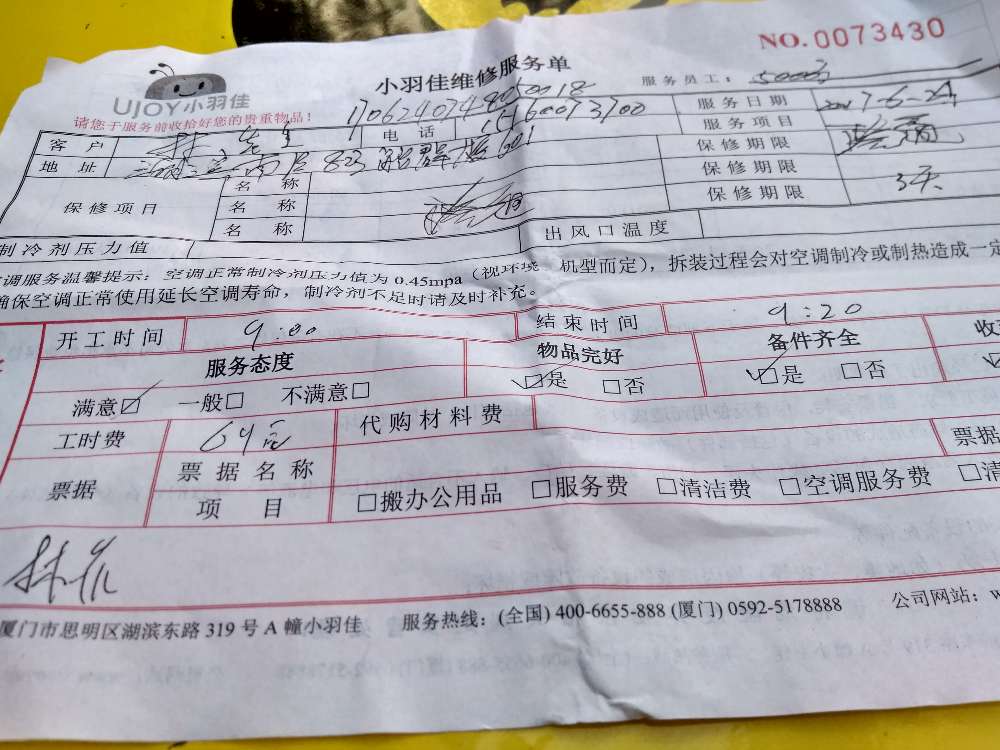 NO.0073430
小羽佳维修服务单
UJOY小羽佳
服务员工：
请您于服务前收拾好您的贵重物品！
服务日期 2017-6-24
客户 林先生 电话 15160073700
服务项目
地址
保修期限
保修项目 名称 保修期限 3天
名称 保修期限
名称
制冷剂压力值 出风口温度
空调服务温馨提示：空调正常制冷剂压力值为 0.45mpa（视环境、机型而定），拆装过程会对空调制冷或制热造成一定
确保空调正常使用延长空调寿命，制冷剂不足时请及时补充。
开工时间 9:00 结束时间 9:20
服务态度 物品完好 备件齐全 收
满意☑ 一般□ 不满意□ ☑是 □否 ☑是 □否
工时费 64元 代购材料费
票据 票据名称 票据
项目 □搬办公用品 □服务费 □清洁费 □空调服务费 □清
厦门市思明区湖滨东路 319 号 A 幢小羽佳 服务热线：(全国) 400-6655-888 (厦门) 0592-5178888 公司网站：w